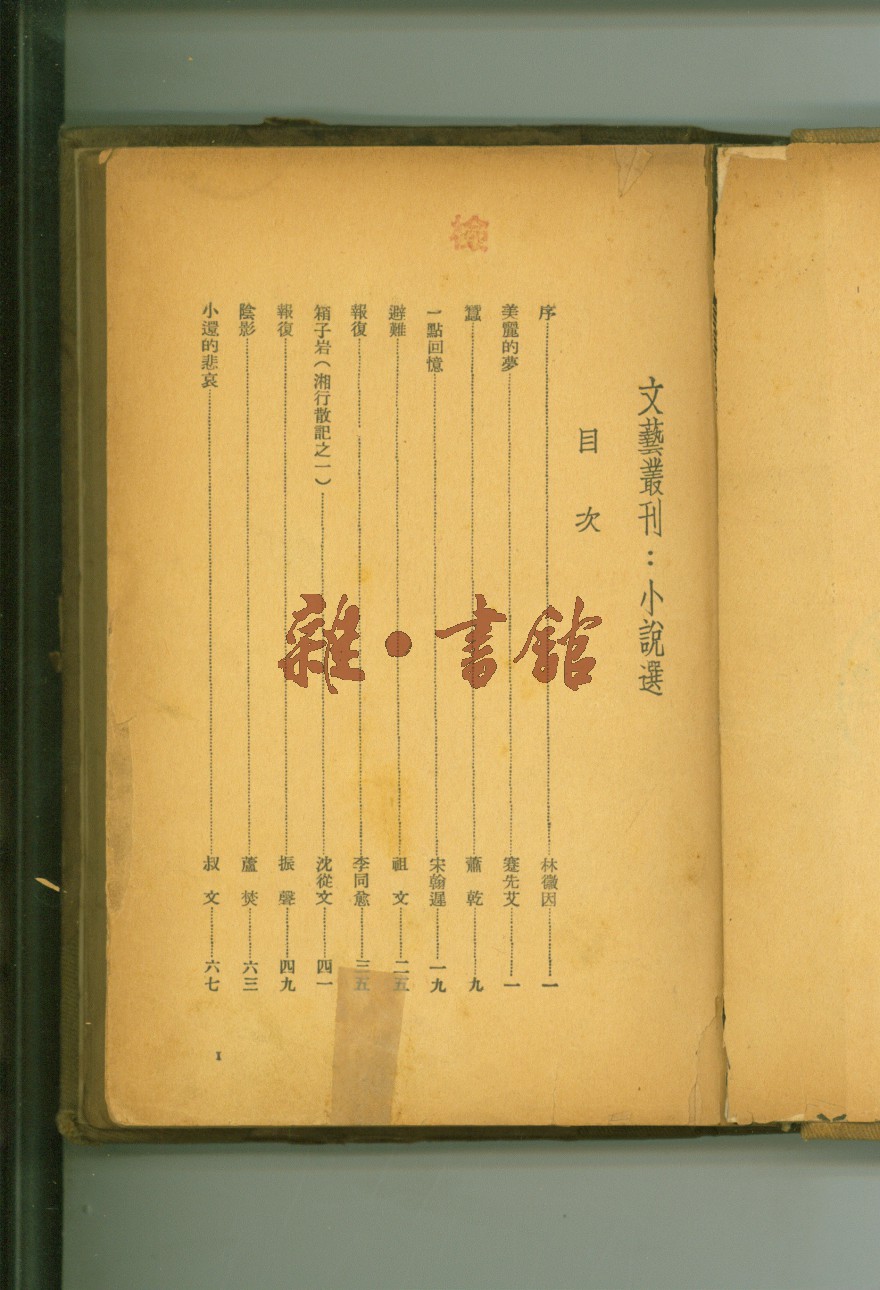 檢
文藝叢刊：小說選
目次
序 林徽因 一
美麗的夢 蹇先艾 一
蠶 蕭乾 九
一點回憶 宋翰遲 一九
避難 祖文 二五
報復 李同愈 三五
箱子岩（湘行散記之一） 沈從文 四一
報復 振聲 四九
陰影 蘆焚 六三
小還的悲哀 叔文 六七
1
雜・書館